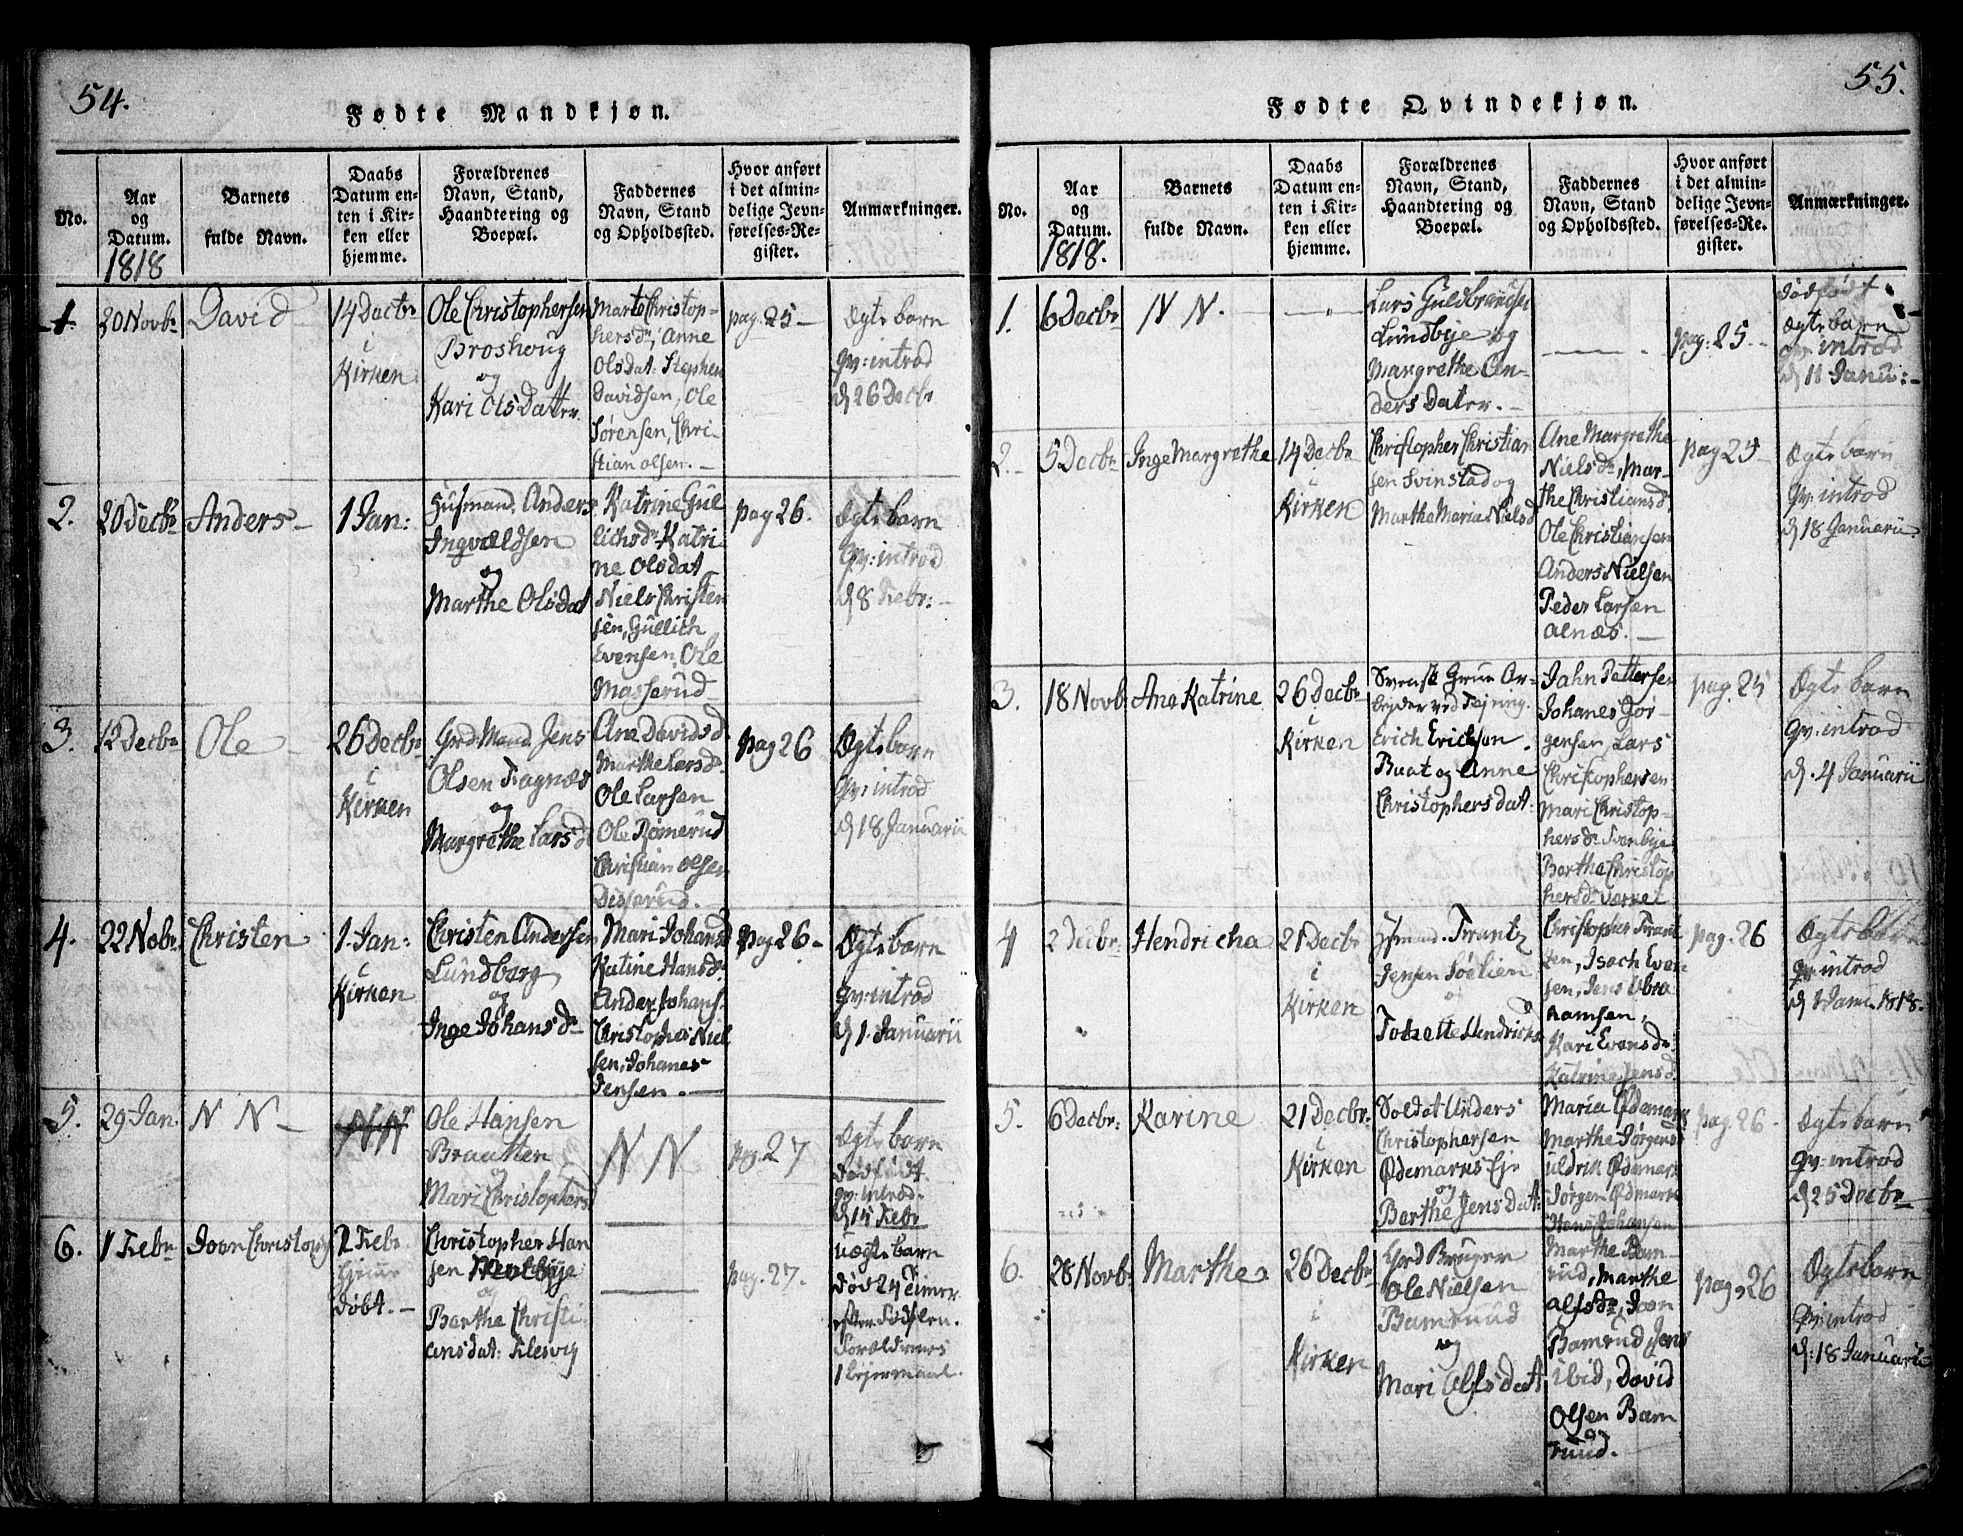 54.
Fødte Mandkjøn.
No.
Aar
og
Datum.
1818
Barnets
fulde Navn.
Daabs
Datum en-
ten i Kir-
ken eller
hjemme.
Forældrenes
Navn, Stand,
Haandtering og
Boepæl.
Faddernes
Navn, Stand
og Opholdssted.
Hvor anført
i det almin-
delige Jevn-
førelses-Re-
gister.
Anmærkninger.
1.
20 Novbr
David
14 Decbr
i
Kirken
Ole Christophersen
Broshoug
og
Kari Olsdatter
Marte Christop-
hersdr, Anne
Olsdat: Stephen
Davidsen, Ole
Sørensen, Chri-
stian Olsen.
pag. 25
Ægte barn
qv: introd
d 26 Decbr
2.
20 Decbr
Anders
1 Jan:
Husmand Anders
Ingvaldsen
og
Marthe Olsdat
Katrine Gul
lichsdr Katri-
ne Olsdat
Niels Christen
sen, Gullich
Evensen, Ole
Masserud
pag 26.
Ægte barn
qv: introd
d 8 Febr:
3.
12 Decbr
Ole
26 Decbr
i
Kirken
Grd Mand Jens
Olsen Fragnæs
og
Margrethe Larsd
Ane Davidsd
Marthe Larsdr
Ole Larsen
Ole Rømerud
Christian Olsen
Disserud.
pag 26
Ægte barn
qv: introd
d 18 Januarii
4.
22 Nobr
Christen
1. Jan:
i
Kirken
Christen Andersen
Lundborg
og
Inge Johansdr
Mari Johansd
Katine Hansdr
Ander Johans.
Christopher Niel
sen, Johanes
Jensen.
pag 26
Ægte barn
qv: introd
d 1. Januarii
5.
29 Jan.
N N
N N
Ole Hansen
Braatten
og
Mari Christophers
N N
pg. 27
Ægte barn
dødfødt.
qv: introd.
d 15 Febr
6.
1 Febr
Joen Christoph
2 Febr
hjeme
døbt.
Christopher Han
sen
og
Berthe Christi
ansdat: Klesvig
pag. 27.
Uægte barn
død 24 Timer
efter Fødslen.
Forældrenes
1 Lejermaal.
55.
Fødte Qvindekjøn.
No.
Aar
og
Datum.
1818.
Barnets
fulde Navn.
Daabs
Datum en-
ten i Kir-
ken eller
hjemme.
Forældrenes
Navn, Stand,
Haandtering og
Boepæl.
Faddernes
Navn, Stand
og Opholdssted.
Hvor anført
i det almin-
delige Jevn-
førelses-Re-
gister.
Anmærkninger.
1.
6 Decbr
N N.
Lars Guldbrandsen
Lundbye og
Margrethe An-
ders Dater.
pag: 25
dødfødt
Ægte barn
qv: introd
d 11 Janu:
2.
5 Decbr
Inge Margrethe
14 Decbr
i
Kirken
Christopher Christian
sen Svinstad og
Marthe Maria Nielsd
Ane Margrethe
Nielsdr, Mar-
the Christiansd.
Ole Christiansen
Anders Nielsen
Peder Larsen
Alnæs.
pag 25
Ægte barn
qv: introd
d 18 Januarii.
3.
18 Novb:
Ane Katrine
26 Decbr
i
Kirken
Svensk Grue Ar-
bejder ved Tejning.
Erich Erichsen.
Buat og Anne
Christophersdat:
Jahn Pettersen
Johanes Jør-
gensen, Lars
Christophersen
Mari Christop-
hersdr Svenbye
Berthe Christop
hersdr Værket
pag. 25
Ægte barn
qv: introd
d. 4 Januarii
4
2 Decbr:
Hendricha
21 Decbr
i
Kirken
Hsmand. Frantz
Jensen Solien
og
Hendrichs
Christopher Frant
zen, Isach Even
sen, Jens Abra
hamsen,
Kari Evensdr
Katrine Jensd.
pag. 26
Ægte barn
qv: introd
d 1 Janu. 1818.
5.
6 Decbr:
Karine
21 Decbr:
i
Kirken
Soldat Anders
Christophersen
Ødemarks Eje
og
Berthe Jensdat:
Maria Ødemark
Marthe Jørgens
Uldrik Ødemark
Jørgen Ødmark
Hans Johansen
pag. 26
Ægte barn
qv: introd
d 25 Decbr
6.
28 Novb:
Marthe
26 Decbr
i
Kirken
Grd Bruger
Ole Nielsen
Bamruud
og
Mari Alfsdat
Marthe Bam
rud, Marthe
Alfsdr, Joen
Bamrud, Jens
ibid, David
Olsen Bam
ruud.
pag. 26
Ægte barn
qv: introd
d: 18 Januarii